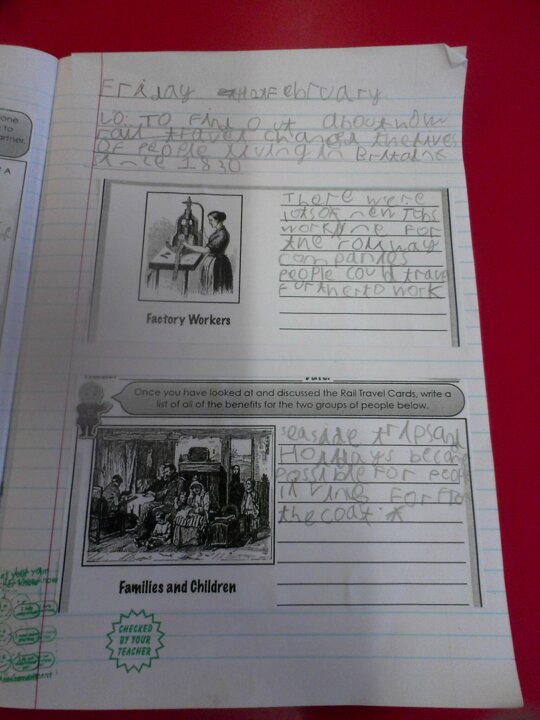 Friday February
LO: To Find Out about how
rail travel changed the lives
OF people living in Britain
since 1830
There were
lots of new Jobs
working for
the railway
companies
people could travel
further to work
Factory Workers
Once you have looked at and discussed the Rail Travel Cards, write a
list of all of the benefits for the two groups of people below.
seaside trips and
Holidays became
possible for people
living far from
the coat.
Families and Children
CHECKED
BY YOUR
TEACHER